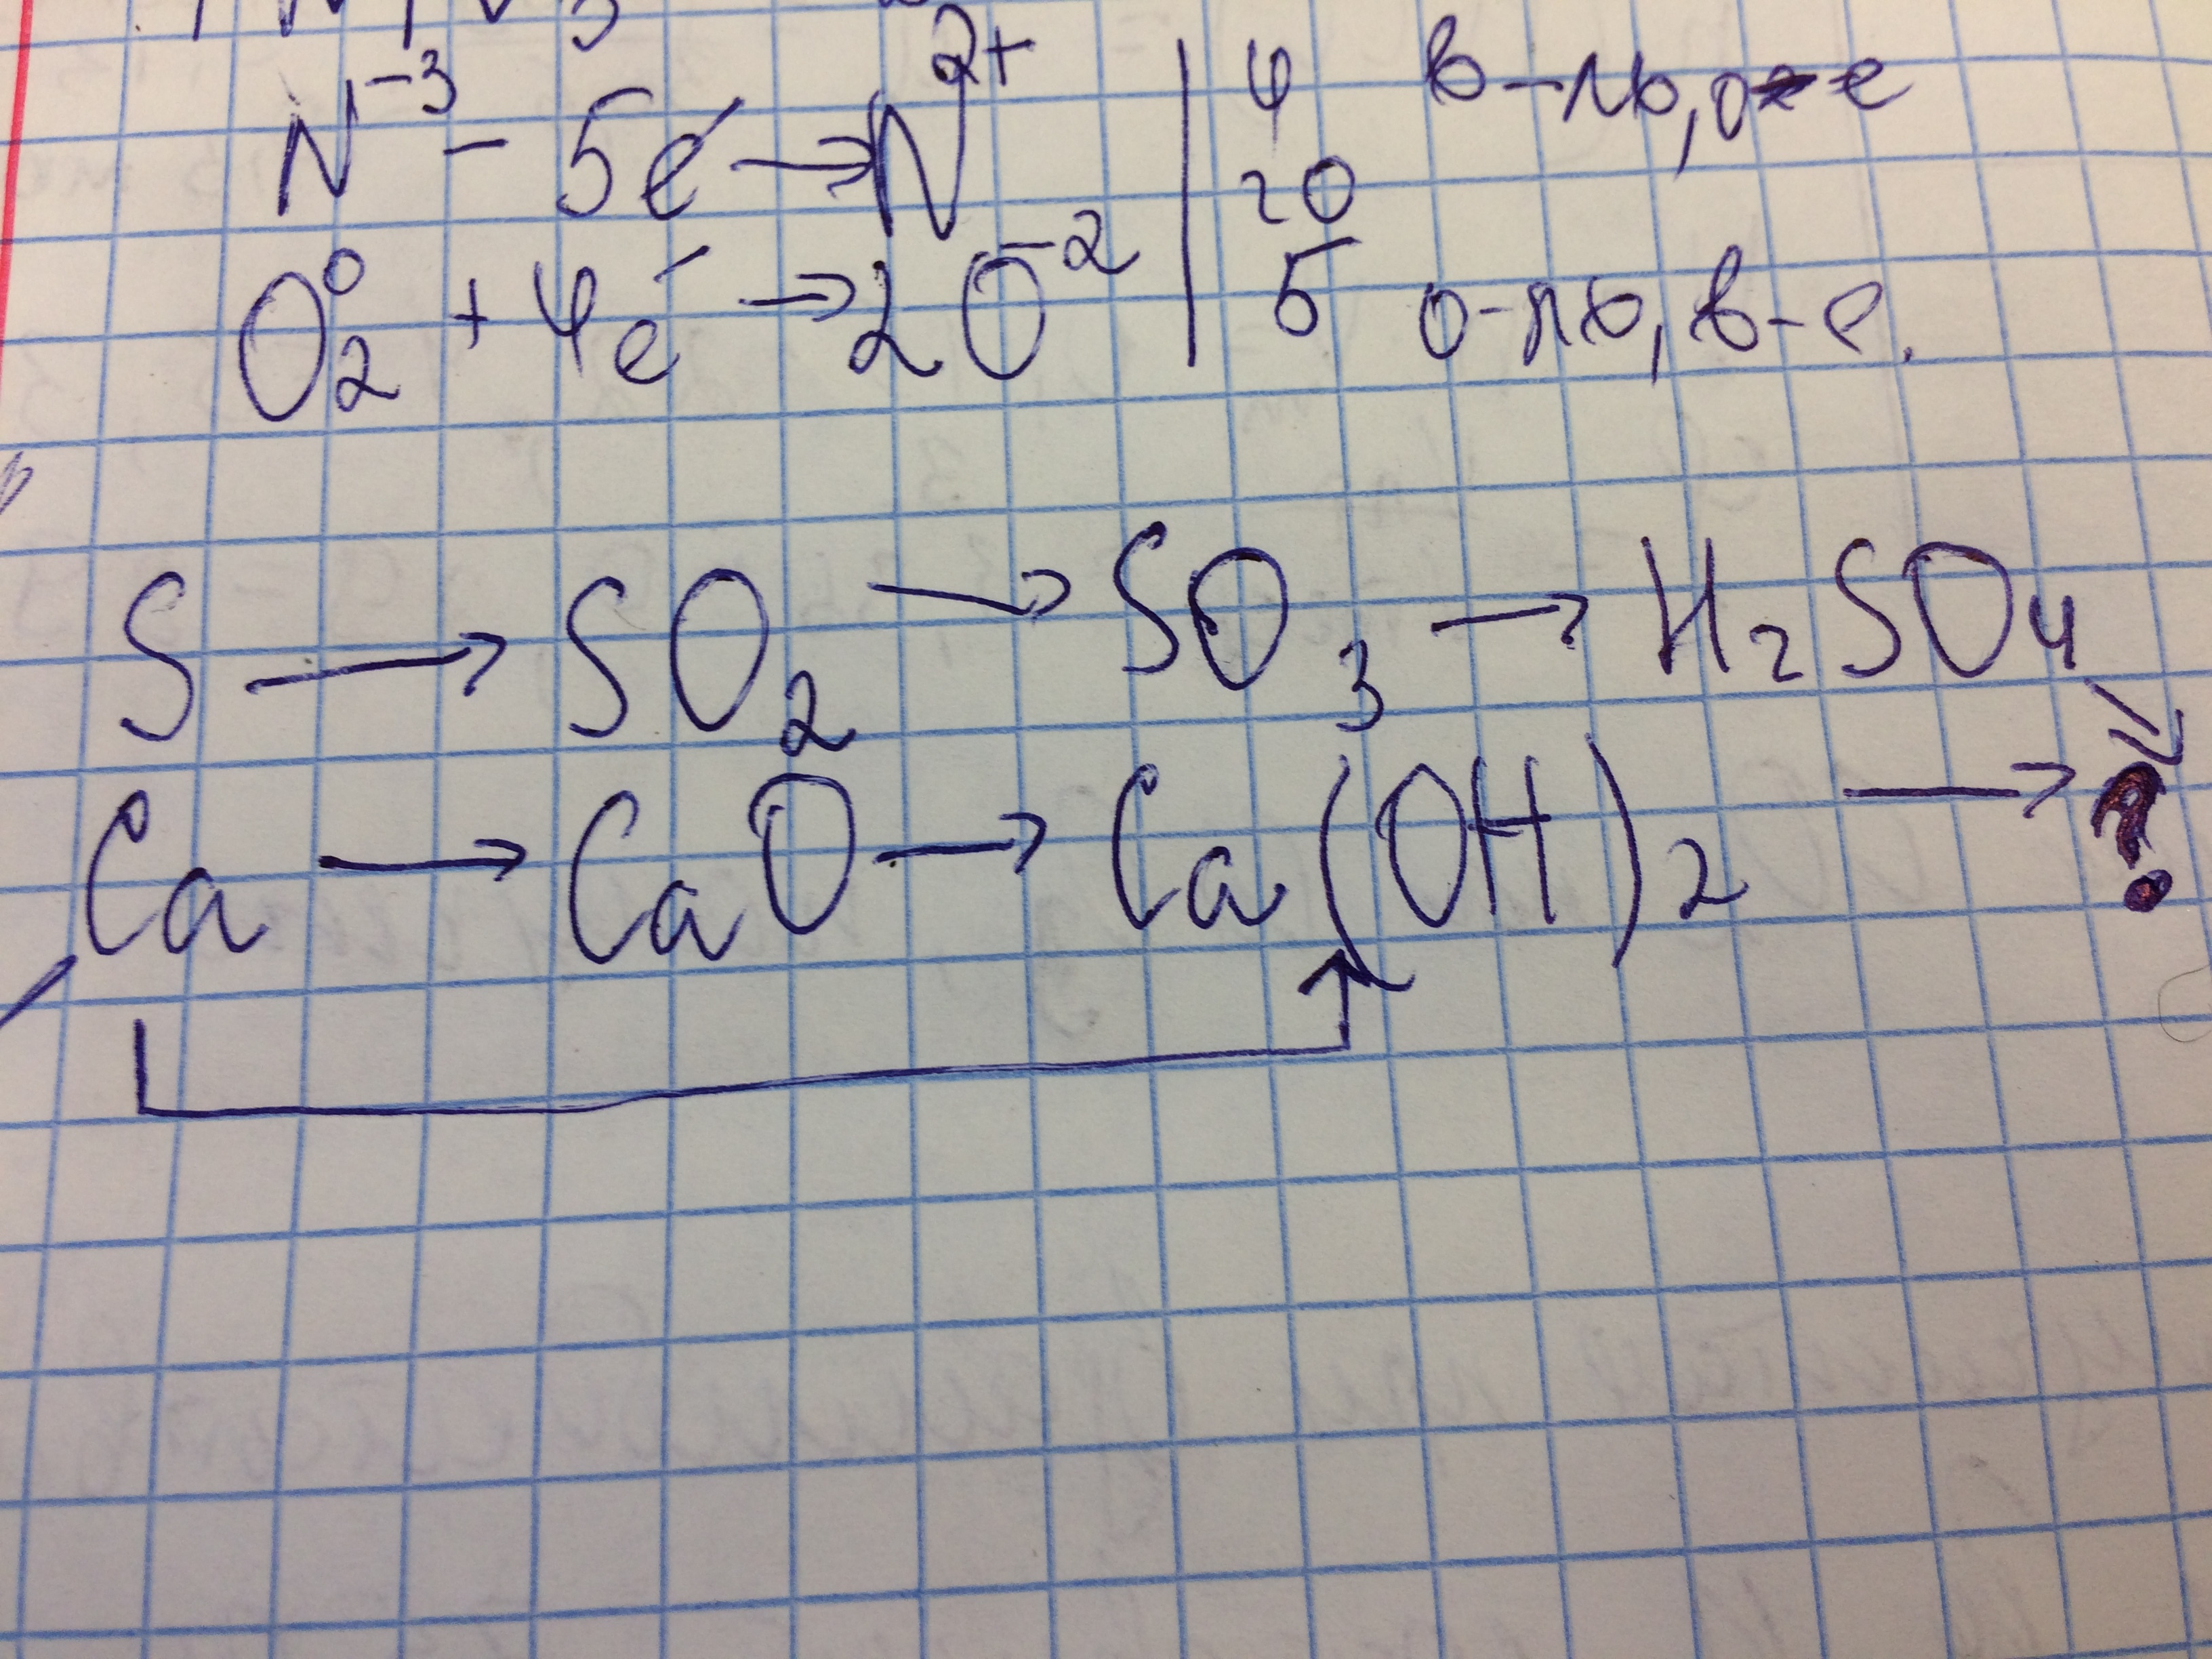 N⁻³ - 5e → N²⁺ | 4 в-ль, о-е
20
O₂⁰ + 4e → 2O⁻² | 5 о-ль, в-е.
S → SO₂ → SO₃ → H₂SO₄
Ca → CaO → Ca(OH)₂ → ?